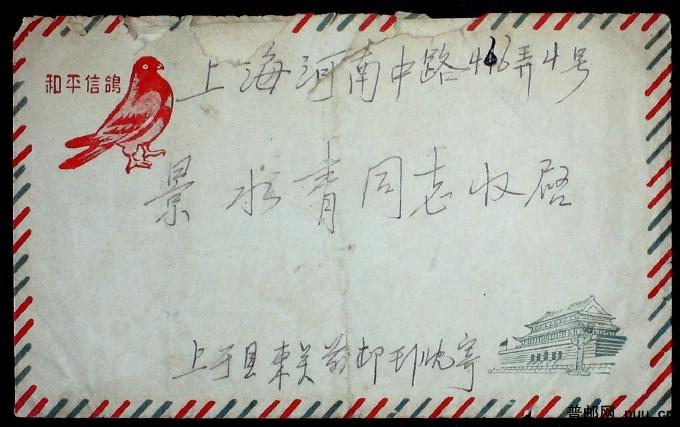 和平信鸽
上海河南中路446弄4号
景水青同志收启
上于县東关
普邮网 puu.cn